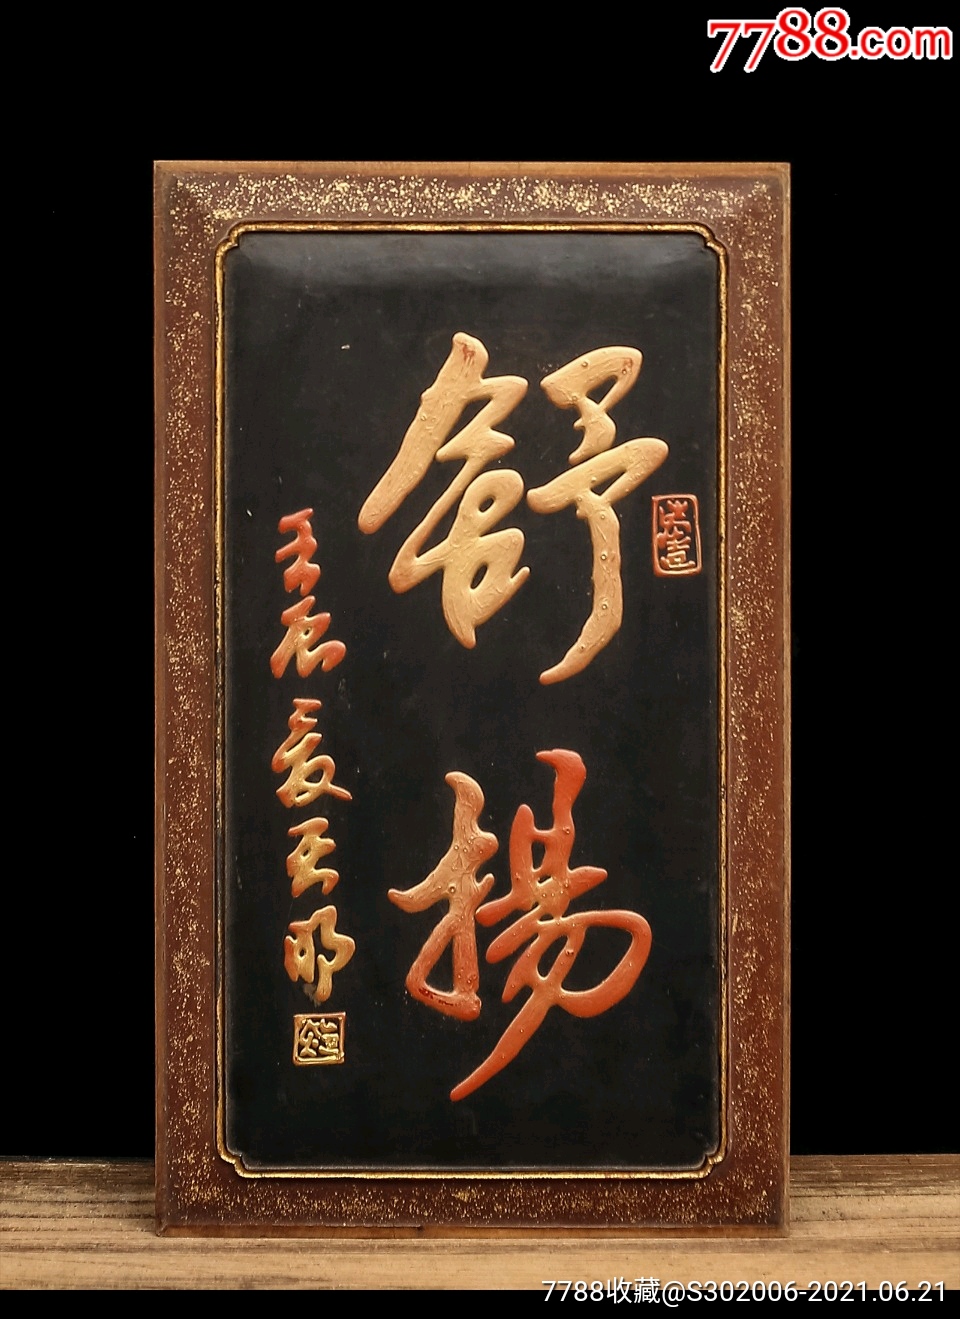 7788.com
舒揚
壬辰夏王明
7788收藏@S302006-2021.06.21